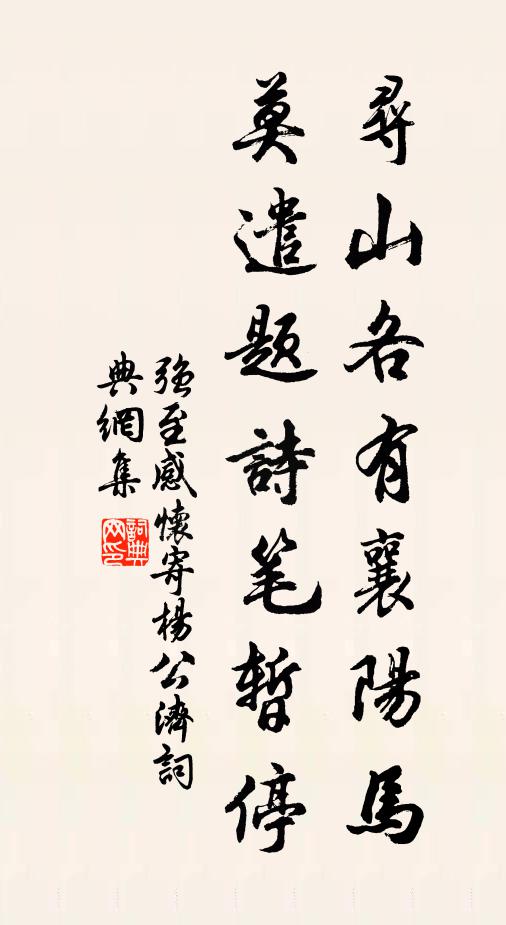 尋山各有襄陽馬
莫遣題詩笔暫停
強至感懷寄楊公濟詞
典網集
詞典网印